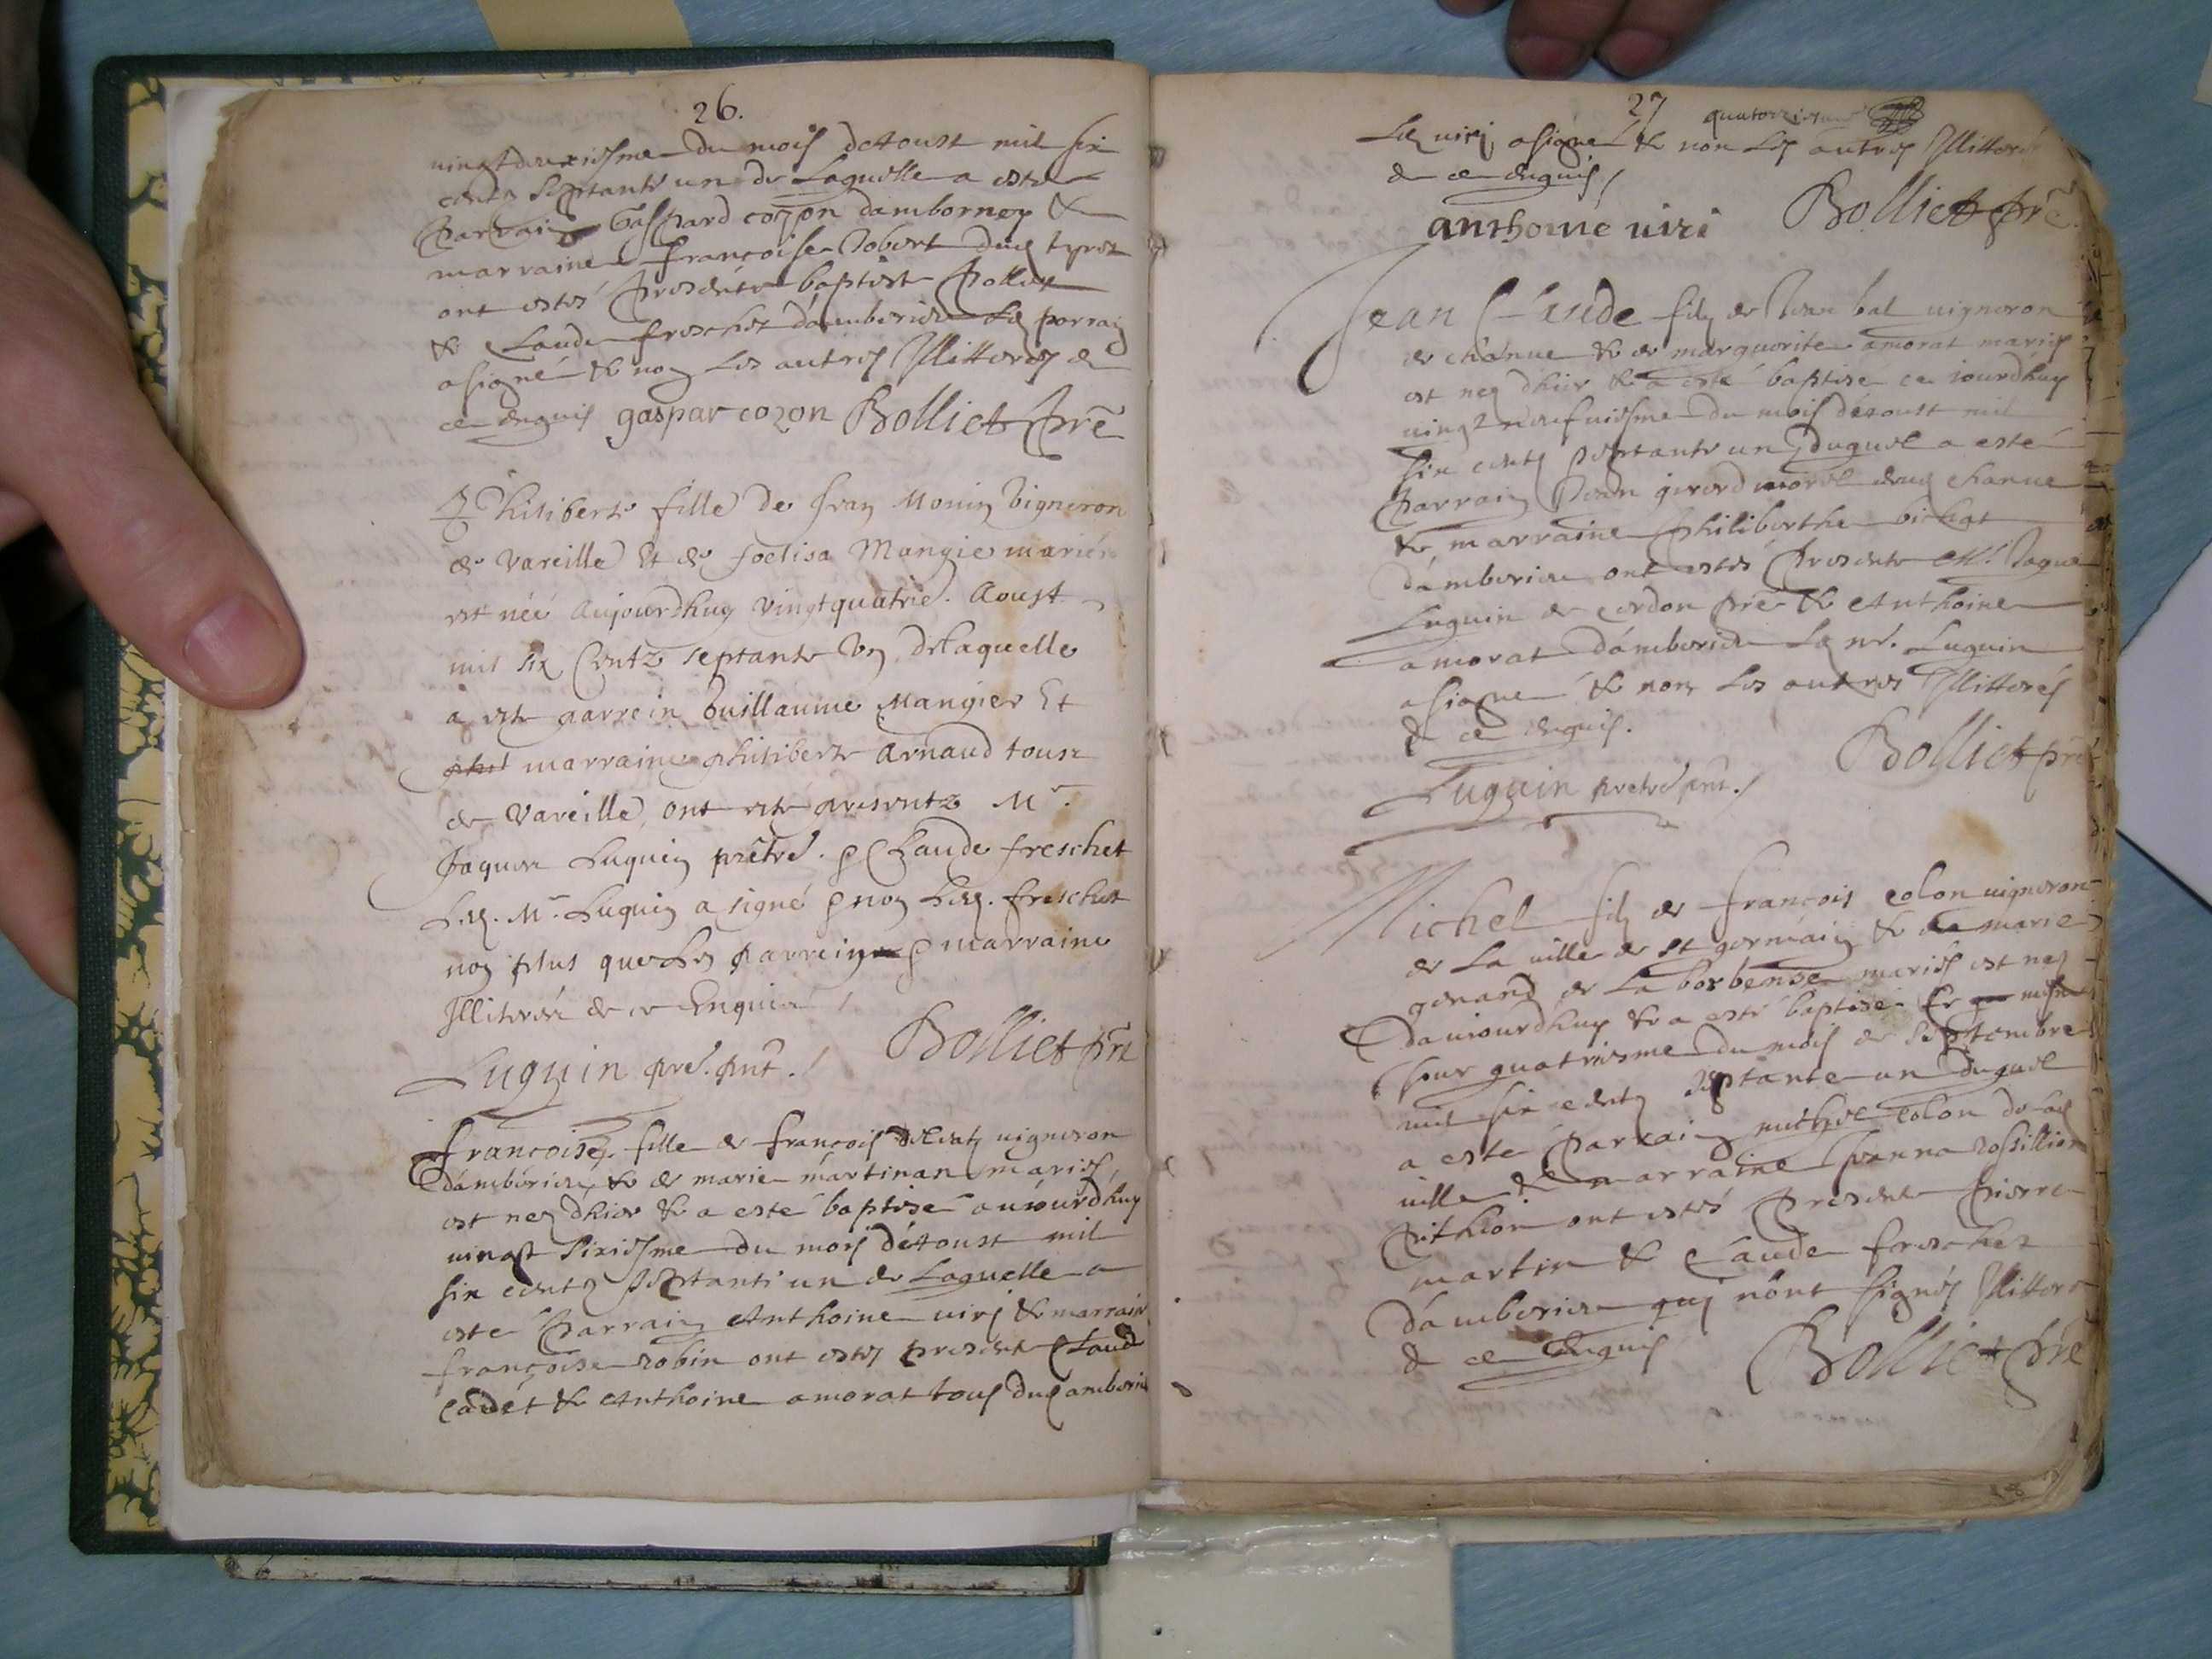 26.
vingtdeuxiesme du mois detoust mil six
centz septante un de Laquelle a este
parrain Gaspard cozon damborney &
marraine francoise Robert dud tyret
ont estés presents baptiste pollet
& Claude freschet damberieu Led parrain
a signé & non Les autres Illitteres de
ce enquis gaspar cozon Bolliet pre
Philiberte fille de Jean Monin Vigneron
de Vareille Et de Mangier mariés
est née Aujourdhuy Vingtquatrie. Aoust
mil six Centz septante Un, de Laquelle
a este parrein Guillaume Mangier Et
marraine philiberte Arnaud tous
de Vareille, ont este presentz Mr.
Jaques Luquin prêtre. & Claude freschet
Led. Mr Luquin a signé & non Led. freschet
non plus que Les parrein & marraine
Illiterés de ce Enquis /
Luguin pre. pnt. / Bolliet pre
francoise fille de francois vigneron
damberieu & de marie martinan mariés,
est nez dhier & a esté baptisé aujourdhuy
vingt sixiesme du mois détoust mil
six centz septante un de Laquelle a
este parrain Anthoine viri & marraine
françoise robin ont estes present Claude
cadet & Anthoine amorat tous dud amberieu
27 quatorziesme
Led viri a signé & non Les autres Illitterés
de ce enquis /
anthoine viri Bolliet pre
Jean Claude filz de Jean bal vigneron
de chanue & de marguerite amorat mariés
est nez dhier & a esté baptisé ce jourdhuy
vingt neufviesme du mois détoust mil
six centz septante un duquel a esté
parrain Jean girerd morel dud chanue
& marraine Philiberthe bichat
dámberieu ont estés presents Mr. Jaque
Luguin de cordon pre & Anthoine
amorat dámberieu Led sr. Luguin
a signé & non Les autres Illitterés
de ce enquis.
Luguin pretre pnt. / Bolliet pre
Michel filz de françois colon vigneron
de La ville de st germain & de marie
genand de La borbense mariés est nez
daujourdhuy & a esté baptisé Le mesme
jour quatriesme du mois de septembre
mil six centz septante un duquel
a esté parrain michel colon de lad
ville & marraine Jeanna rossillion
pithion ont estés presents pierre
martin & Claude freschet
dámberieu qui nont signés Illittere
de ce enquis Bolliet pre